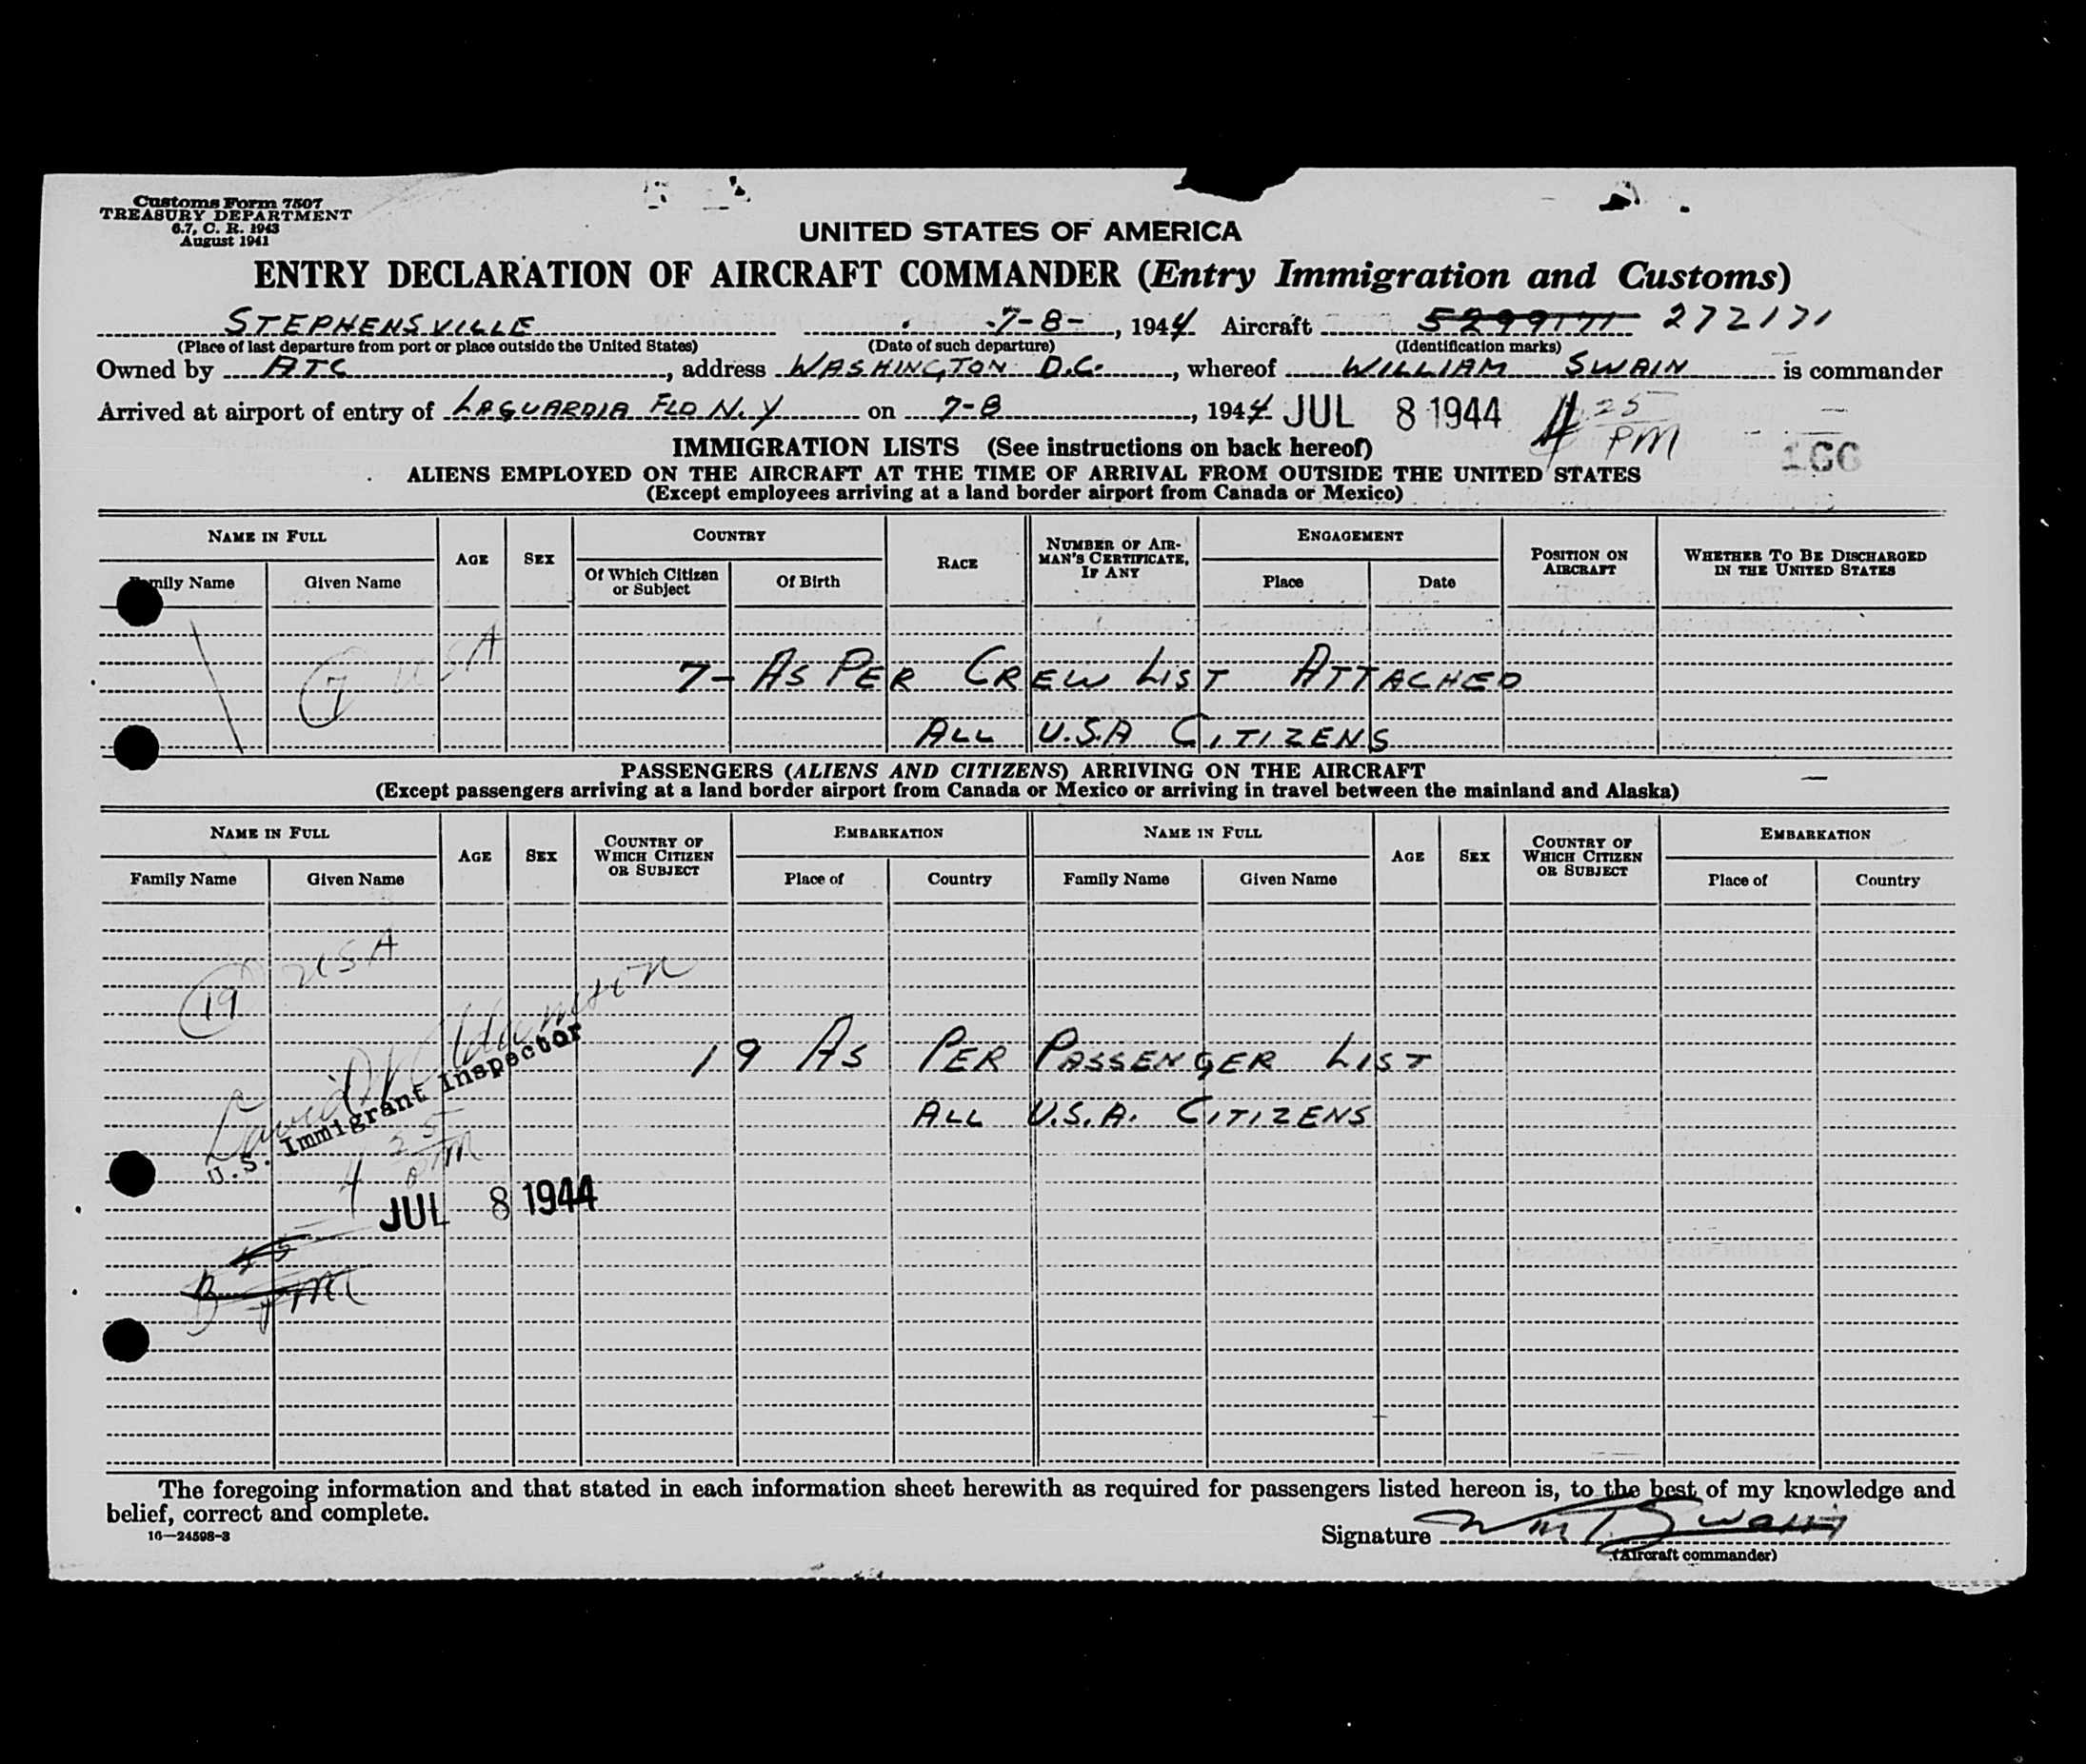 Customs Form 7507
TREASURY DEPARTMENT
6.7, C. R. 1943
August 1941
UNITED STATES OF AMERICA
ENTRY DECLARATION OF AIRCRAFT COMMANDER (Entry Immigration and Customs)
STEPHENSVILLE 7-8-, 1944 Aircraft 5299171 272171
(Place of last departure from port or place outside the United States) (Date of such departure) (Identification marks)
Owned by ATC, address WASHINGTON D.C., whereof WILLIAM SWAIN is commander
Arrived at airport of entry of LAGUARDIA FLD N.Y on 7-8, 1944 JUL 8 1944 4 25 PM
166
IMMIGRATION LISTS (See instructions on back hereof)
ALIENS EMPLOYED ON THE AIRCRAFT AT THE TIME OF ARRIVAL FROM OUTSIDE THE UNITED STATES
(Except employees arriving at a land border airport from Canada or Mexico)
NAME IN FULL AGE SEX COUNTRY RACE NUMBER OF AIRMAN'S CERTIFICATE, IF ANY ENGAGEMENT POSITION ON AIRCRAFT WHETHER TO BE DISCHARGED IN THE UNITED STATES
Family Name Given Name Of Which Citizen or Subject Of Birth Place Date
7 USA
7- AS PER CREW LIST ATTACHED
ALL U.S.A CITIZENS
PASSENGERS (ALIENS AND CITIZENS) ARRIVING ON THE AIRCRAFT
(Except passengers arriving at a land border airport from Canada or Mexico or arriving in travel between the mainland and Alaska)
NAME IN FULL AGE SEX COUNTRY OF WHICH CITIZEN OR SUBJECT EMBARKATION NAME IN FULL AGE SEX COUNTRY OF WHICH CITIZEN OR SUBJECT EMBARKATION
Family Name Given Name Place of Country Family Name Given Name Place of Country
19 USA
19 AS PER PASSENGER LIST
ALL U.S.A. CITIZENS
David
U.S. Immigrant Inspector
4 25 PM
JUL 8 1944
PM
The foregoing information and that stated in each information sheet herewith as required for passengers listed hereon is, to the best of my knowledge and
belief, correct and complete.
16—24598-3
Signature Wm T Swain
(Aircraft commander)